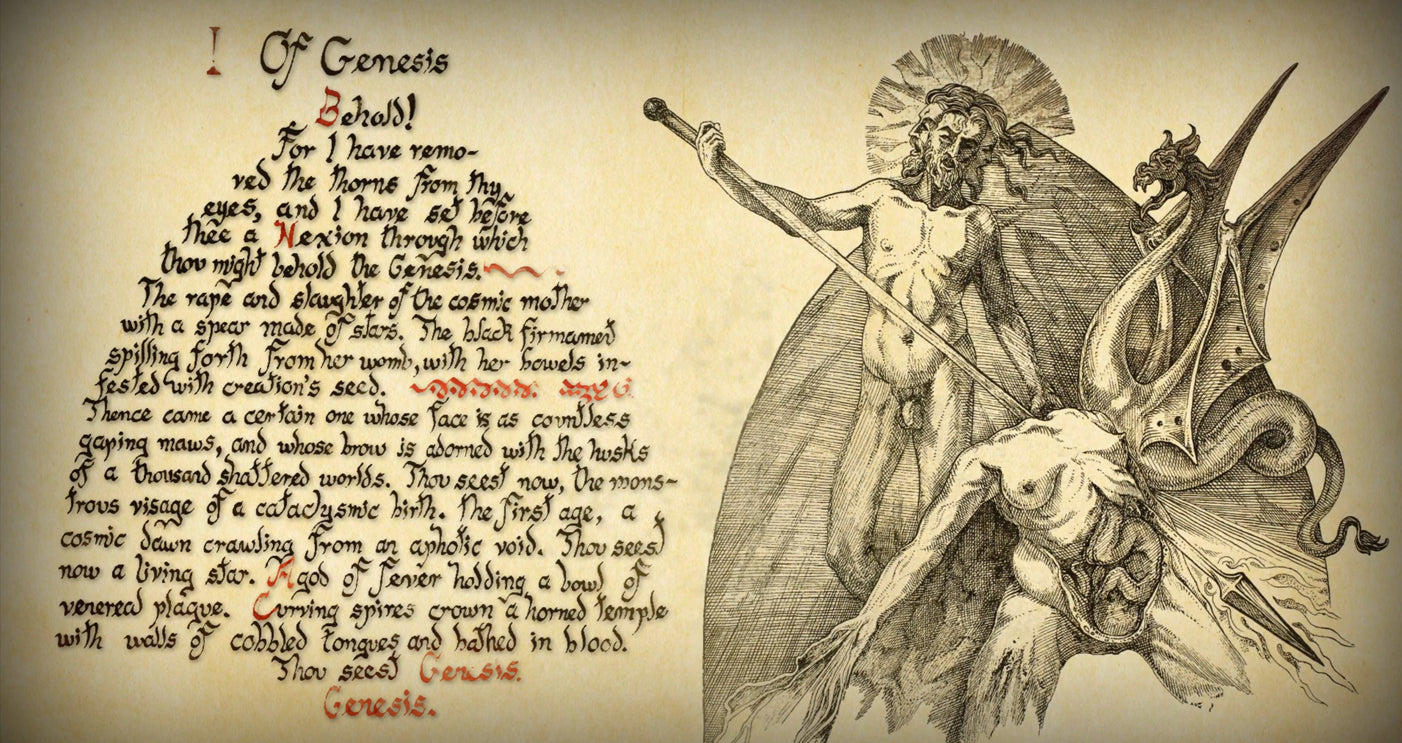 I Of Genesis
Behold!
For I have remo-
ved the thorns from thy
eyes, and I have set before
thee a Nexion through which
thou might behold the Genesis.
The rape and slaughter of the cosmic mother
with a spear made of stars. The black firmamet
spilling forth from her womb, with her bowels in-
fested with creation's seed.
Thence came a certain one whose face is as countless
gaping maws, and whose brow is adorned with the husks
of a thousand shattered worlds. Thou seest now, the mons-
trous visage of a cataclysmic birth. The first age, a
cosmic dawn crawling from an aphotic void. Thou seest
now a living star. A god of fever holding a bowl of
venereal plague. Curving spires crown a horned temple
with walls of cobbled tongues and bathed in blood.
Thou seest Genesis.
Genesis.